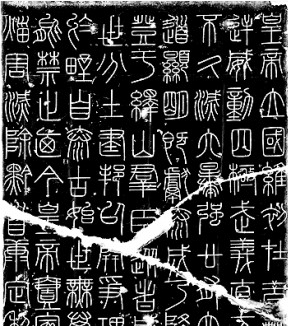 皇帝立國維初在昔
逆威動四極武義直
不久滅六暴強廿有六
道顯明既獻泰成乃降
登于繹山群臣從者咸
世分土建邦以開爭理
於野自泰古始世無萬
能禁止廼今皇帝壹家
災害滅除黔首康定